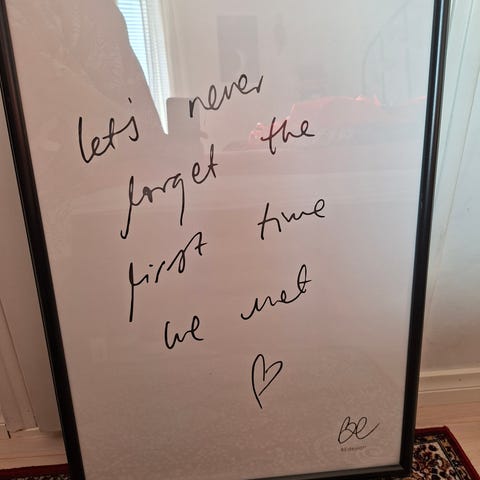 let's never
forget the
first time
we met
Be